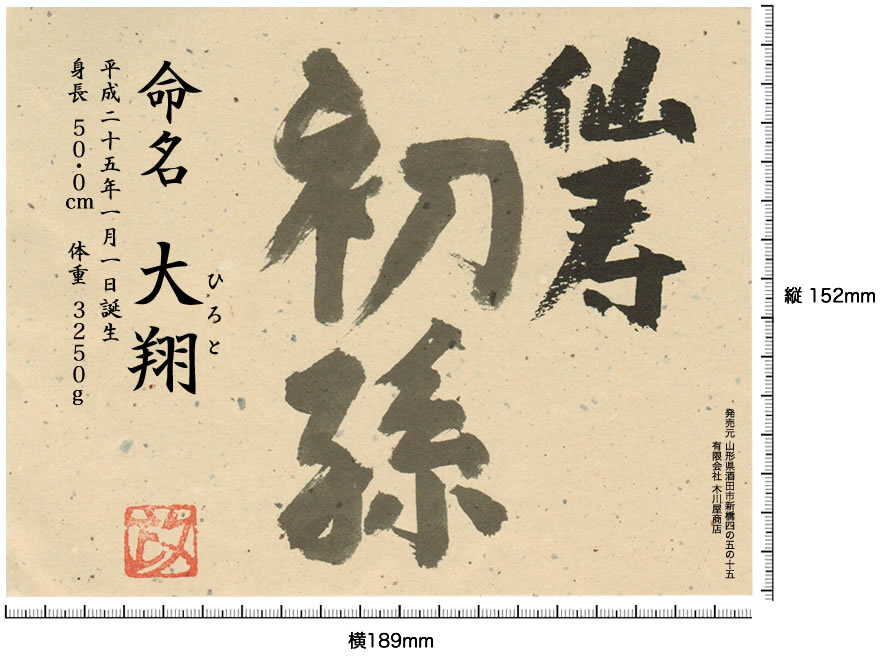 仙寿
初孫
命名 大翔
ひろと
平成二十五年一月一日誕生
身長 50.0cm 体重 3250g
発売元 山形県酒田市新橋四の五の十五
有限会社 木川屋商店
縦 152mm
横189mm